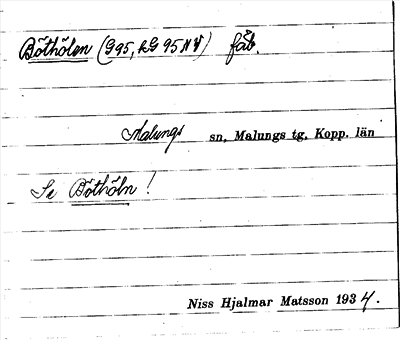 Böthölen (G95, LG 95 NV) fäb.
Malungs sn, Malungs tg, Kopp. län
Se Böthöln!
Niss Hjalmar Matsson 1934.